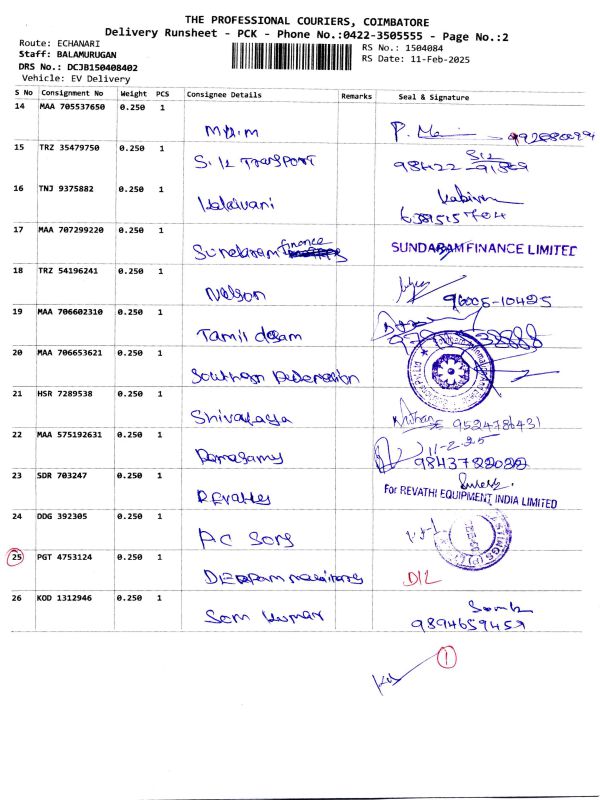 THE PROFESSIONAL COURIERS, COIMBATORE
Delivery Runsheet - PCK - Phone No.:0422-3505555 - Page No.:2
Route: ECHANARI
Staff: BALAMURUGAN
DRS No.: DCJB150408402
Vehicle: EV Delivery
RS No.: 1504084
RS Date: 11-Feb-2025
S No Consignment No Weight PCS Consignee Details Remarks Seal & Signature
14 MAA 705537650 0.250 1
15 TRZ 35479750 0.250 1
S. K TRANSPORT 98422-91869
16 TNJ 9375882 0.250 1
Kalaivani
17 MAA 707299220 0.250 1
Sundaram finance SUNDARAM FINANCE LIMITED
18 TRZ 54196241 0.250 1
Nelson 96005-10425
19 MAA 706602310 0.250 1
Tamil desam
20 MAA 706653621 0.250 1
Southern Federation
21 HSR 7289538 0.250 1
Shivalaya 9524786431
22 MAA 575192631 0.250 1
11-2-25
Ramasamy 9843722022
23 SDR 703247 0.250 1
Suresh
Revathi For REVATHI EQUIPMENT INDIA LIMITED
24 DDG 392305 0.250 1
AC Sons
25 PGT 4753124 0.250 1
D/L
26 KOD 1312946 0.250 1
Som Kumar 9894659459
1